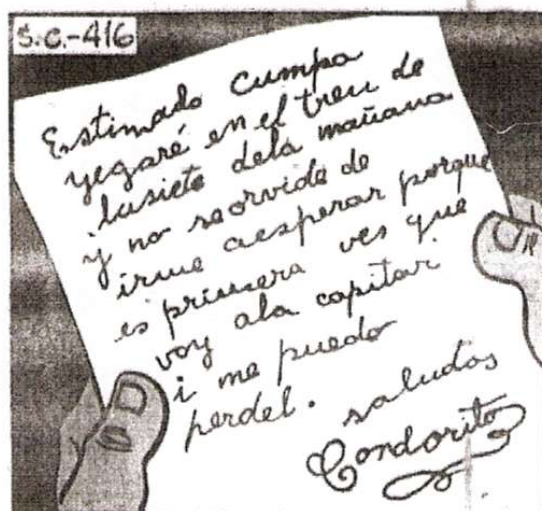 S.C.-416
Estimado cumpa
yegaré en el tren de
lasiete dela mañana
y no seorvide de
irme aesperar porque
es primera ves que
voy ala capitar
i me puedo
perdel. saludos
Condorito